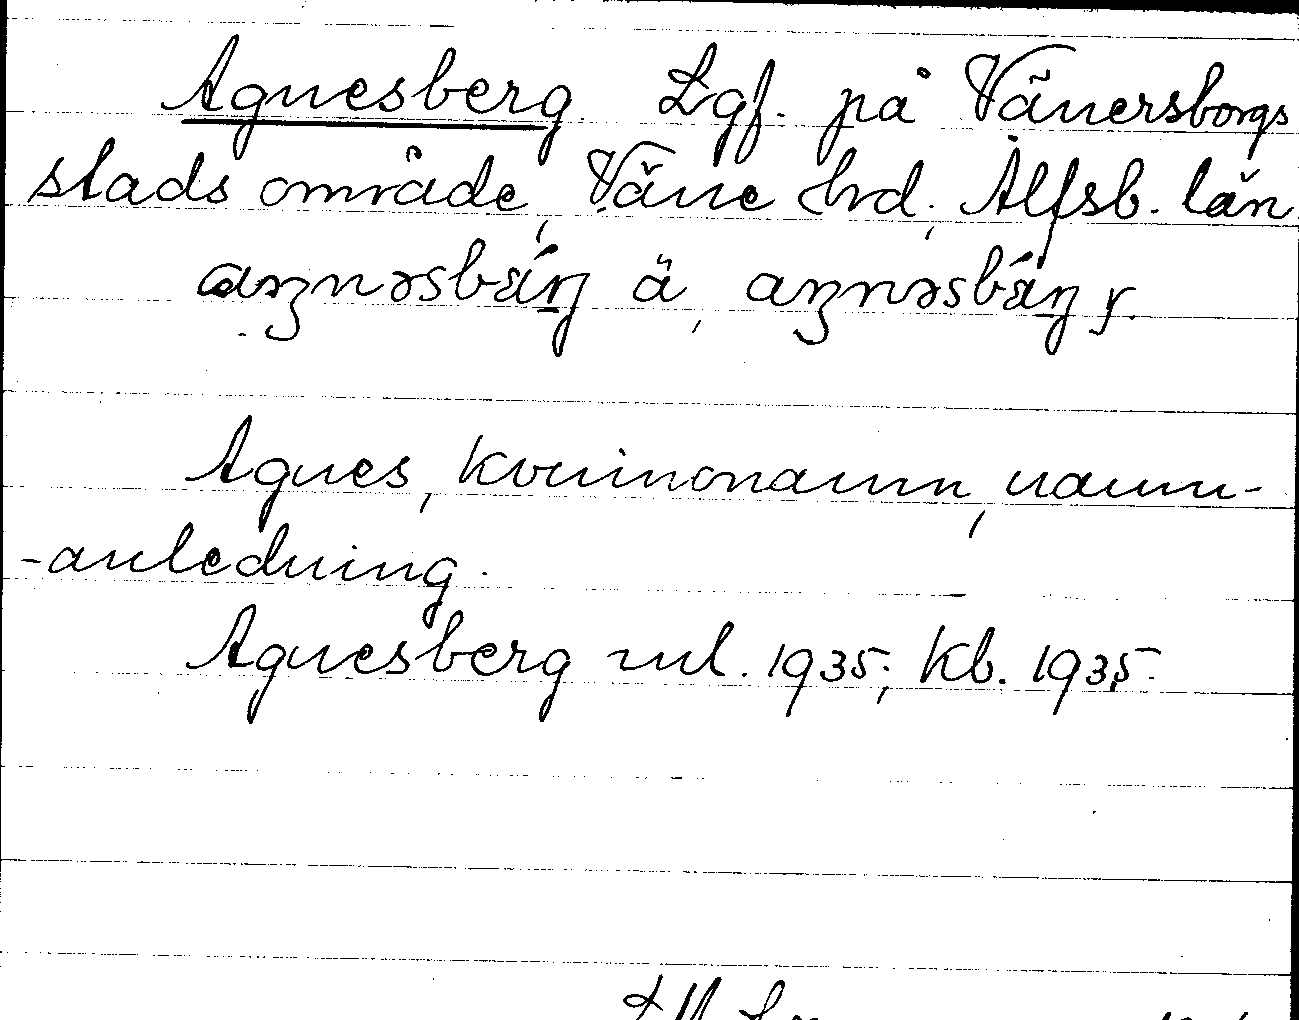 Agnesberg. Lgf. på Vänersborgs
stads område, Väne hrd, Älfsb. län.
aŋnəsbä́rj ä, aŋnəsbä́rj y.
Agnes, kvinnonamn, namn-
-anledning.
Agnesberg ml. 1935; Kb. 1935.